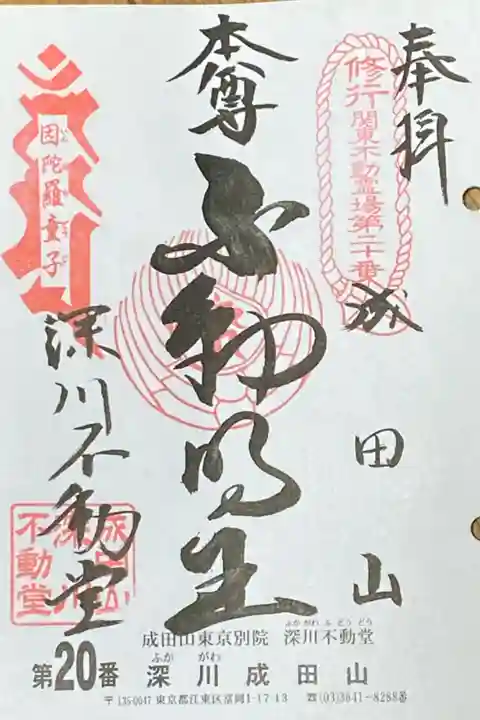 奉拝
修行 関東不動霊場第二十番
成田山
本尊
不動明王
因陀羅童子
深川不動堂
成田山
深川
不動堂
成田山東京別院 深川不動堂
ふかがわふどうどう
第20番 深川成田山
ふか がわ
〒135-0047 東京都江東区富岡1-17-13 ☎(03)3641-8288番